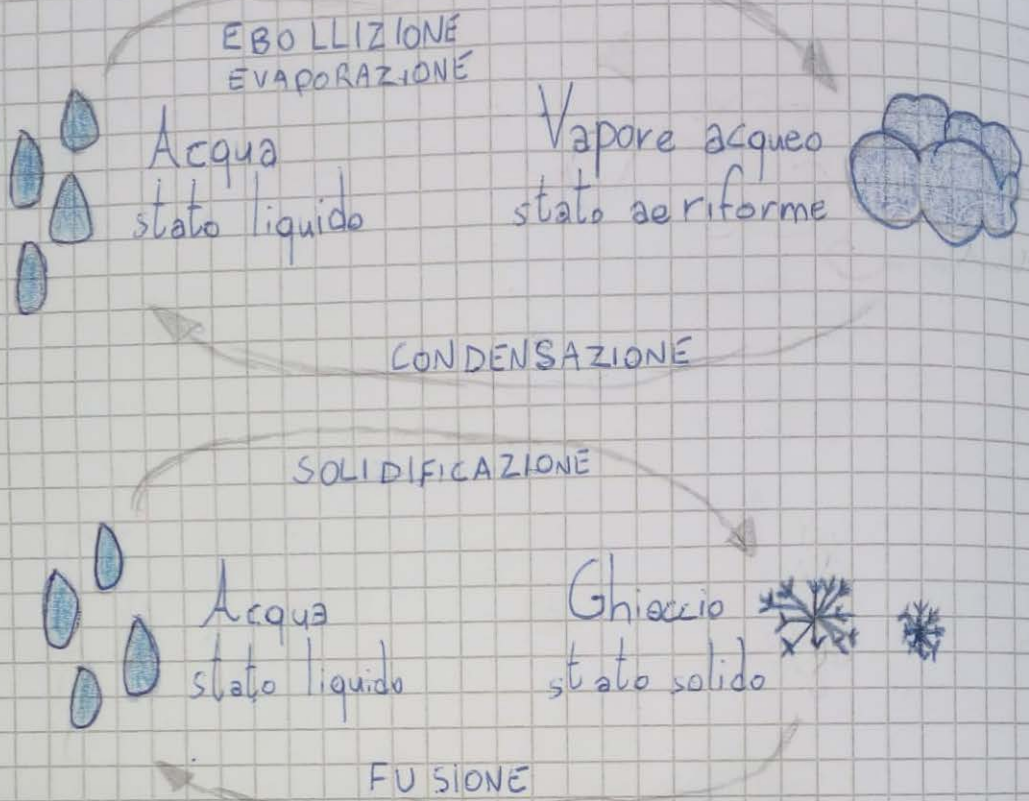 EBOLLIZIONE
EVAPORAZIONE
Acqua
stato liquido
Vapore acqueo
stato aeriforme
CONDENSAZIONE
SOLIDIFICAZIONE
Acqua
stato liquido
Ghiaccio
stato solido
FUSIONE